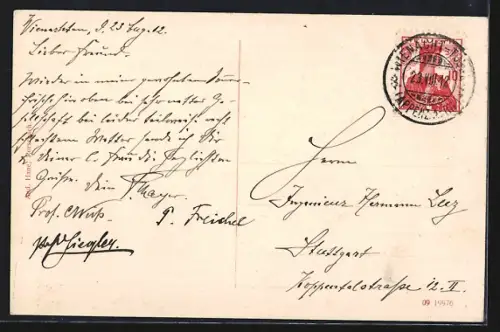 Wienachten, d. 23 Aug. 12.
Lieber Freund.
Wieder in meiner gewohnten Sommer-
frische hier oben bei sehr netter Ge-
sellschaft bei leider teilweise recht
schlechtem Wetter sende ich Dir
u. deiner l. Frau die herzlichsten
Grüße. Dein Mayer.
Prof.
P. Freihel
Ziegler.
WIENACHT-TOBEL
23.VIII.12
(APPENZELL)
10
Herrn
Ingenieur Hermann
Stuttgart
Hoppenlaustraße 12. II.
09 19976